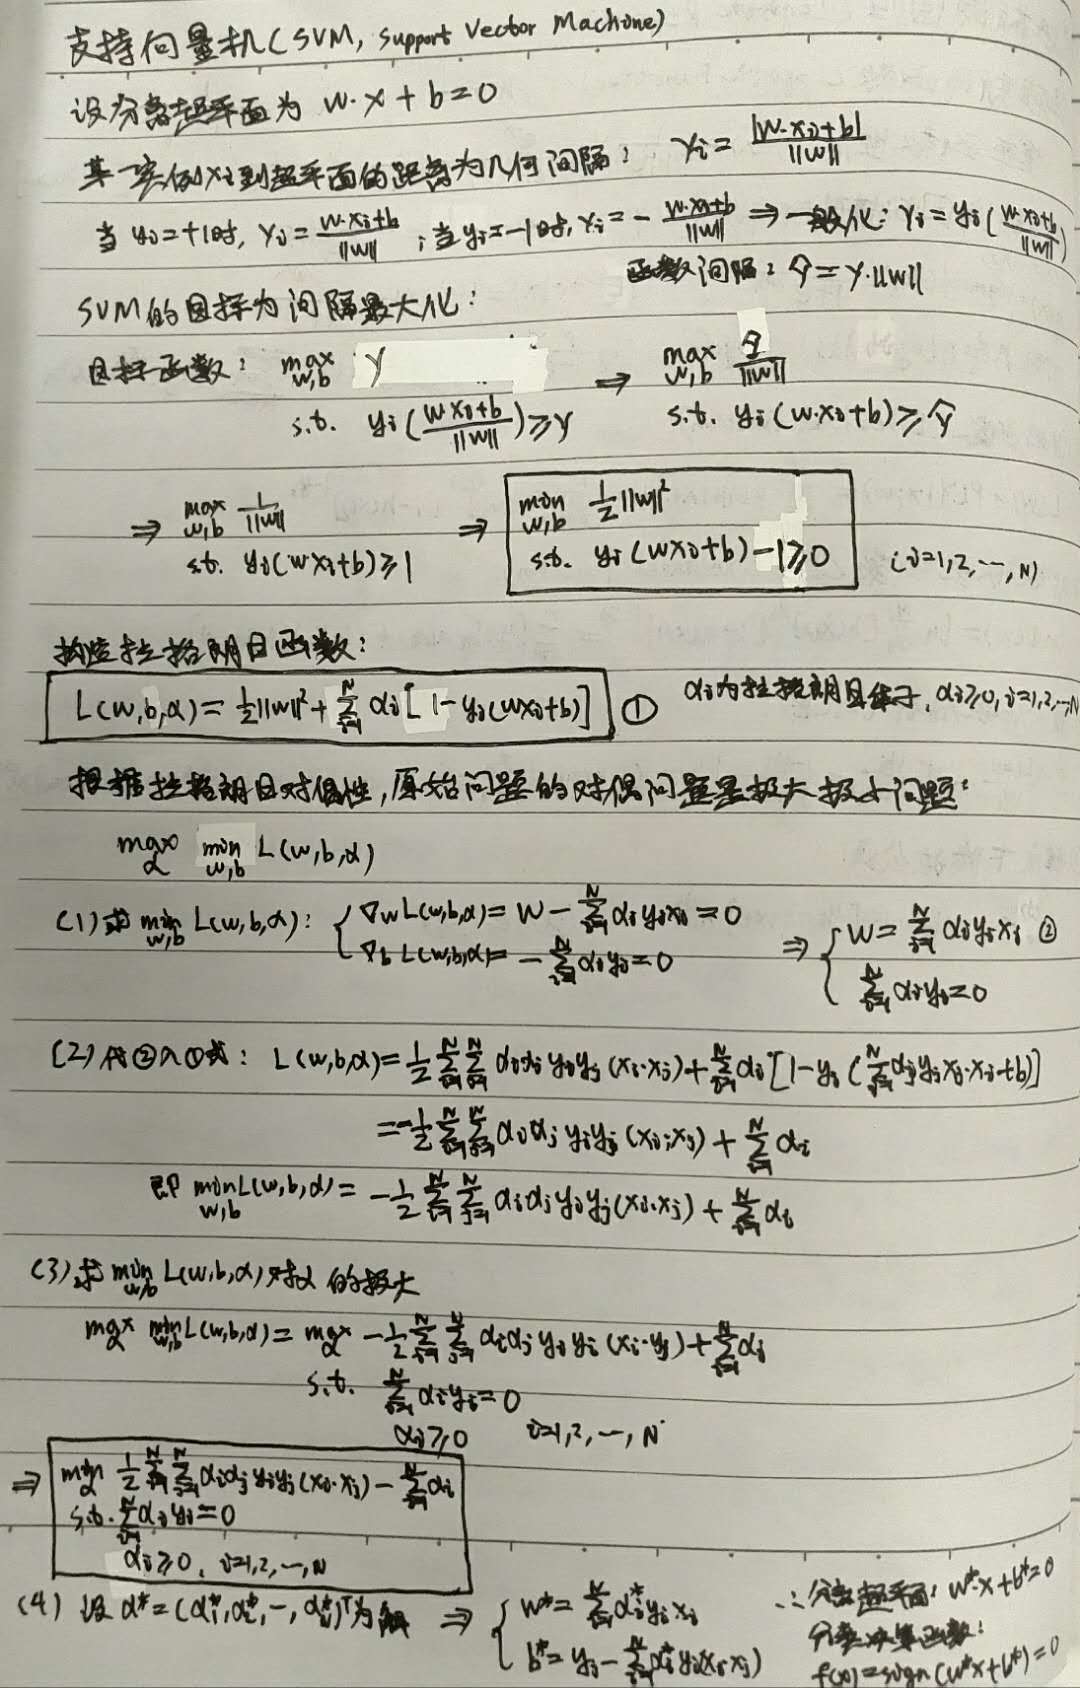 支持向量机(SVM, Support Vector Machine)
设分离超平面为 w·x+b=0
某一实例xi到超平面的距离为几何间隔: γi = |w·xi+b| / ||w||
当yi=+1时, γi = (w·xi+b)/||w|| ; 当yi=-1时, γi = - (w·xi+b)/||w|| ⇒ 一般化: γi = yi((w·xi+b)/||w||)
函数间隔: γ̂ = γ·||w||
SVM的目标为间隔最大化:
目标函数: max_{w,b} γ ⇒ max_{w,b} γ̂/||w||
s.t. yi((w·xi+b)/||w||) ≥ γ s.t. yi(w·xi+b) ≥ γ̂
⇒ max_{w,b} 1/||w|| ⇒ min_{w,b} ½||w||²
s.t. yi(wxi+b) ≥ 1 s.t. yi(wxi+b) -1 ≥ 0 (i=1,2,…,N)
构造拉格朗日函数:
L(w,b,α) = ½||w||² + Σ_{i=1}^N αi[1-yi(wxi+b)] ① αi为拉格朗日乘子, αi≥0, i=1,2,…,N
根据拉格朗日对偶性, 原始问题的对偶问题是极大极小问题:
max_α min_{w,b} L(w,b,α)
(1) 求 min_{w,b} L(w,b,α): { ∇w L(w,b,α) = w - Σ_{i=1}^N αiyixi = 0 ⇒ { w = Σ_{i=1}^N αiyixi ②
∇b L(w,b,α) = - Σ_{i=1}^N αiyi = 0 Σ_{i=1}^N αiyi = 0
(2) 代②入①式: L(w,b,α) = ½ Σ_{i=1}^N Σ_{j=1}^N αiαjyiyj(xi·xj) + Σ_{i=1}^N αi[1-yi(Σ_{j=1}^N αjyjxj·xi+b)]
= -½ Σ_{i=1}^N Σ_{j=1}^N αiαjyiyj(xi·xj) + Σ_{i=1}^N αi
即 min_{w,b} L(w,b,α) = -½ Σ_{i=1}^N Σ_{j=1}^N αiαjyiyj(xi·xj) + Σ_{i=1}^N αi
(3) 求 min_{w,b} L(w,b,α) 对α的极大
max_α min_{w,b} L(w,b,α) = max_α -½ Σ_{i=1}^N Σ_{j=1}^N αiαjyiyi(xi·yj) + Σ_{i=1}^N αi
s.t. Σ_{i=1}^N αiyi = 0
αi ≥ 0 i=1,2,…,N
⇒ min_α ½ Σ_{i=1}^N Σ_{j=1}^N αiαjyiyj(xi·xj) - Σ_{i=1}^N αi
s.t. Σ_{i=1}^N αiyi = 0
αi ≥ 0, i=1,2,…,N
(4) 设 α* = (α1*, α2*, …, αN*)^T 为解 ⇒ { w* = Σ_{i=1}^N αi*yixi
b* = yj - Σ_{i=1}^N αi*yi(xi·xj)
∴ 分离超平面: w*·x+b*=0
分类决策函数:
f(x) = sign(w*x+b*)=0